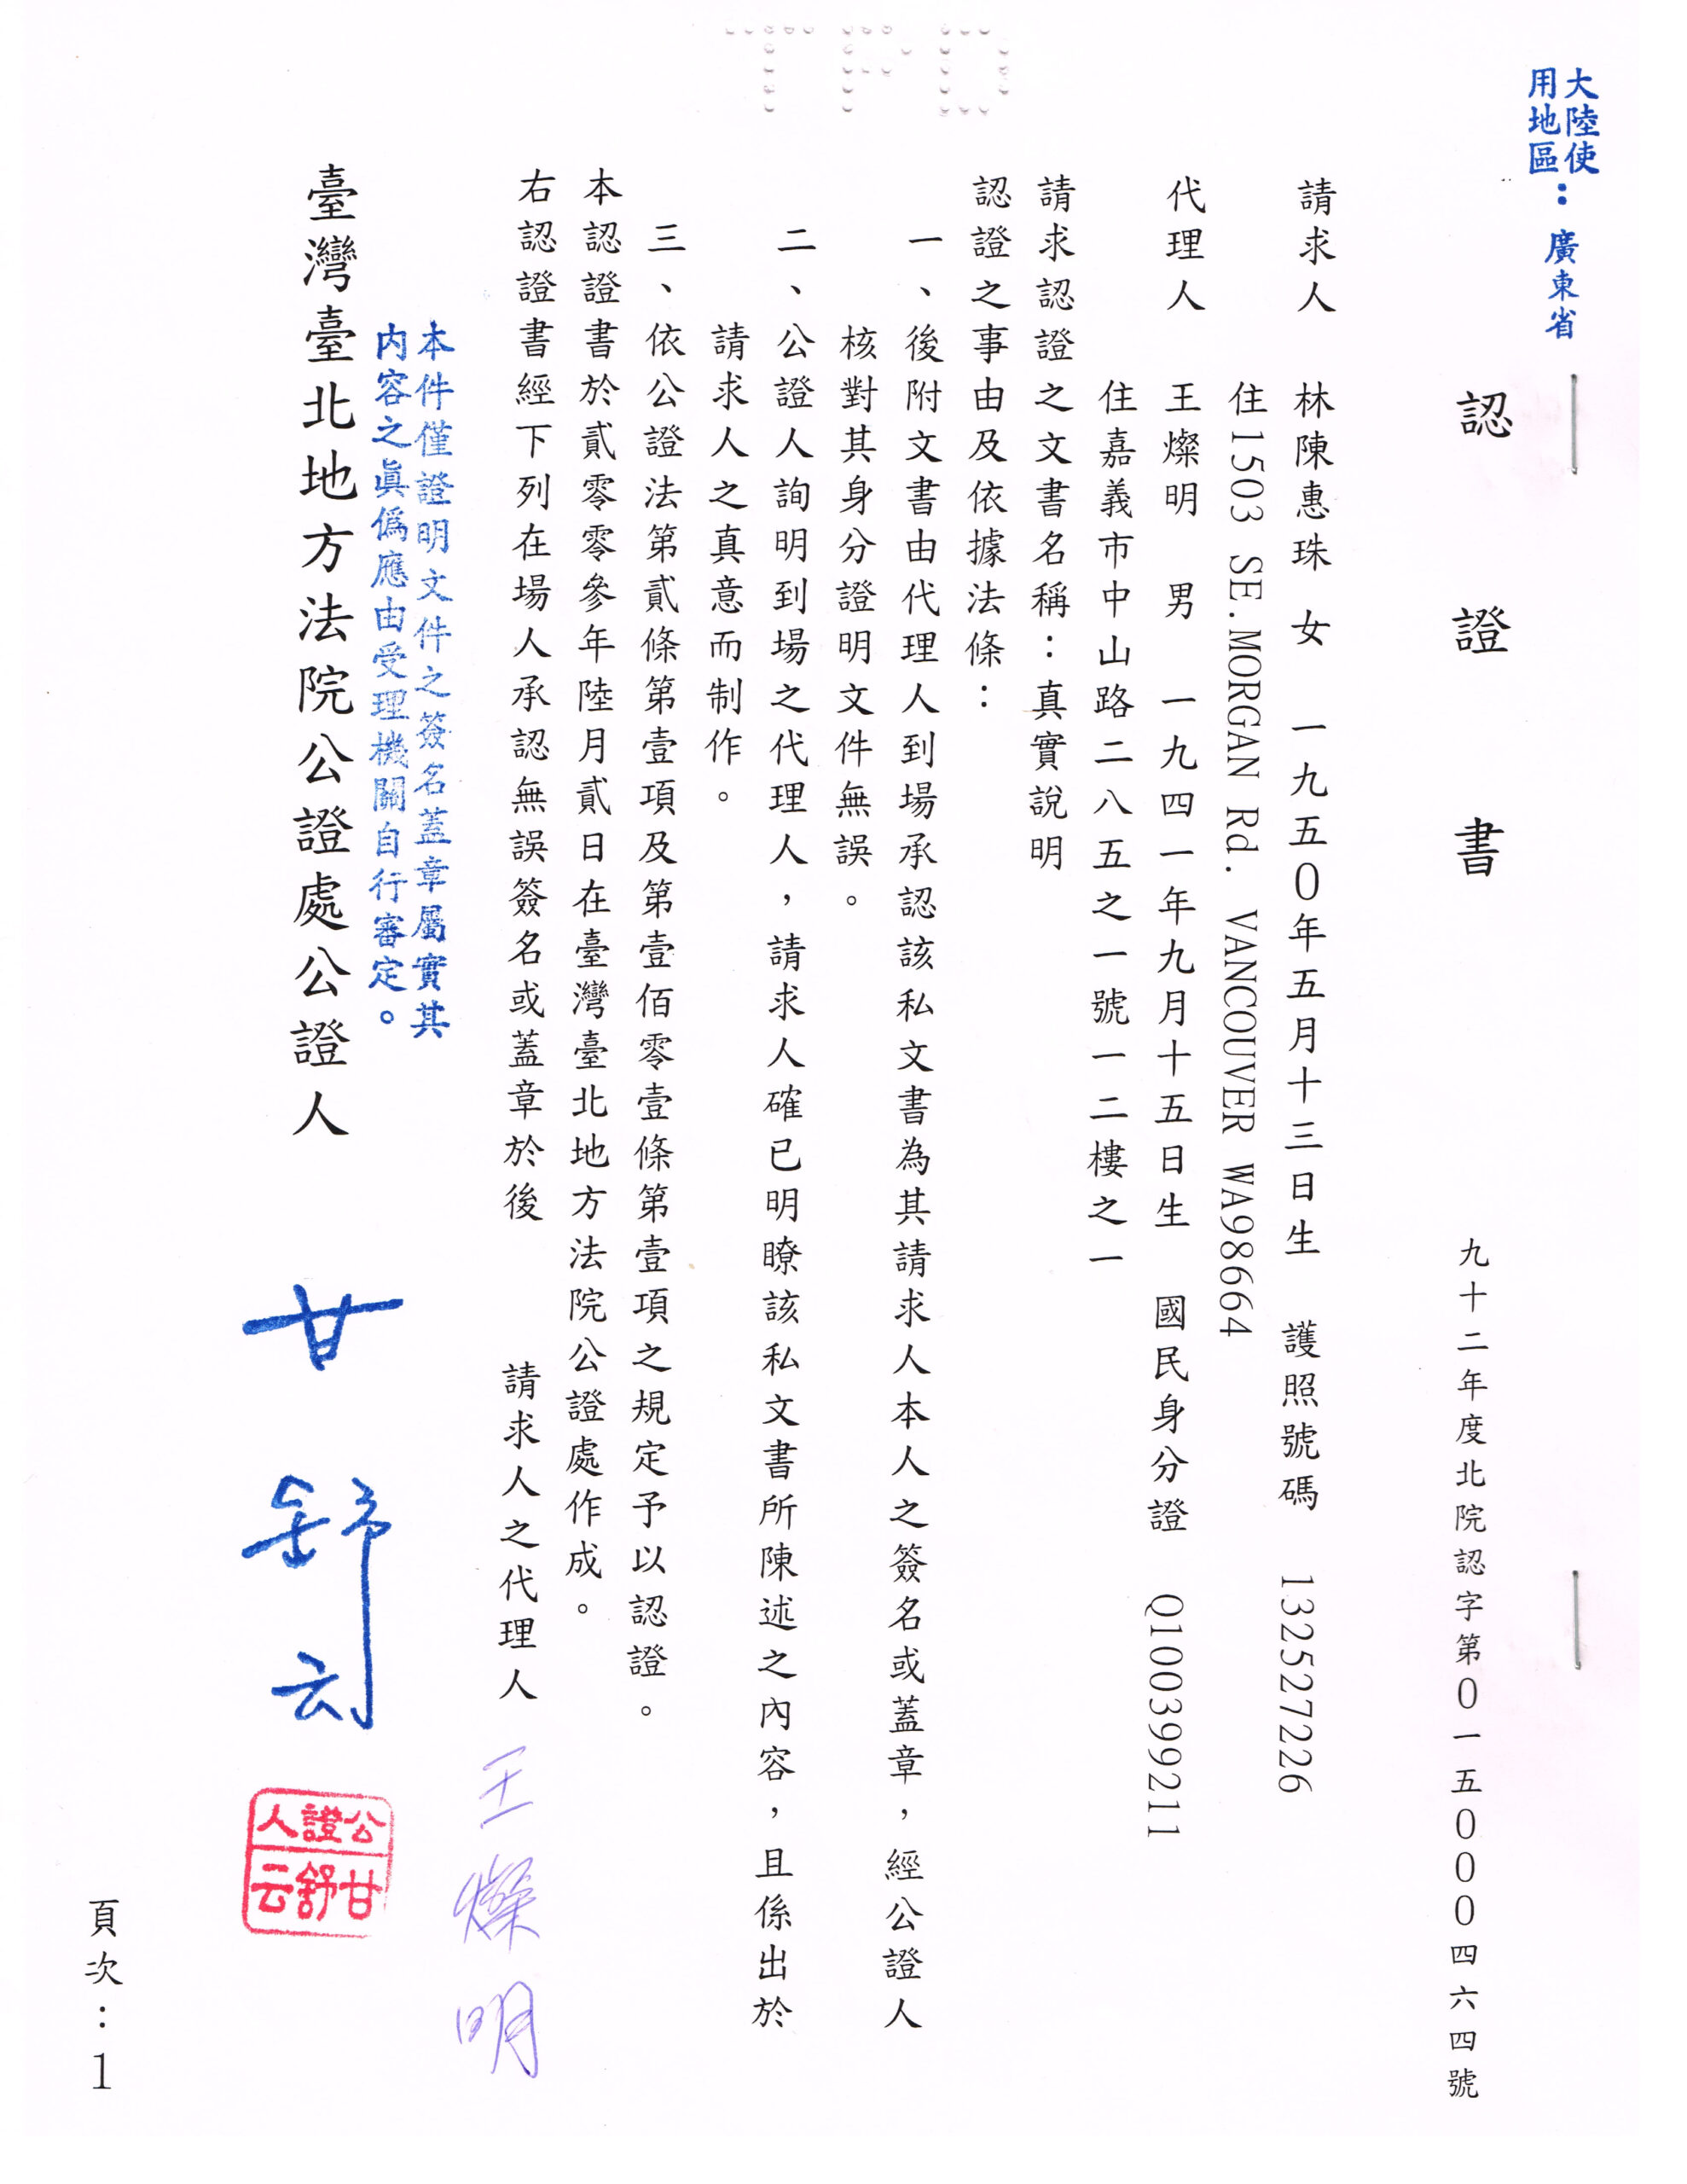 大陸使
用地區：廣東省
認證書
九十二年度北院認字第０一五０００四六四號
請求人　林陳惠珠　女　一九五０年五月十三日生　護照號碼　132527226
住1503 SE.MORGAN Rd. VANCOUVER WA98664
代理人　王燦明　男　一九四一年九月十五日生　國民身分證　Q100399211
住嘉義市中山路二八五之一號一二樓之一
請求認證之文書名稱：真實說明
認證之事由及依據法條：
一、後附文書由代理人到場承認該私文書為其請求人本人之簽名或蓋章，經公證人
核對其身分證明文件無誤。
二、公證人詢明到場之代理人，請求人確已明瞭該私文書所陳述之內容，且係出於
請求人之真意而制作。
三、依公證法第貳條第壹項及第壹佰零壹條第壹項之規定予以認證。
本認證書於貳零零參年陸月貳日在臺灣臺北地方法院公證處作成。
右認證書經下列在場人承認無誤簽名或蓋章於後　請求人之代理人　王燦明
本件僅證明文件之簽名蓋章屬實其
內容之眞僞應由受理機關自行審定。
臺灣臺北地方法院公證處公證人　甘舒云
公證人
甘舒云
頁次：1
TPD